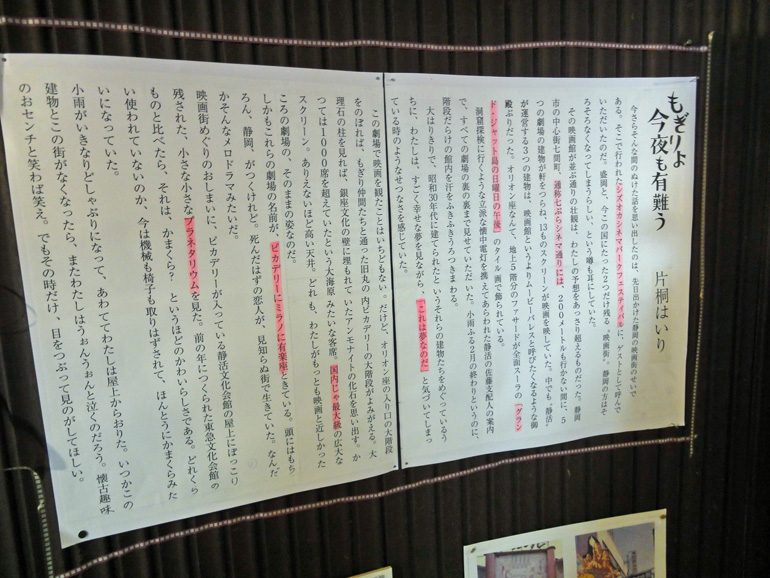 もぎりよ
今夜も有難う
片桐はいり
今さらそんな間のぬけた話を思い出したのは、先日出かけた静岡の映画街のせいで
ある。そこで行われたシズオカシネマパークフェスティバルに、ゲストとして呼んで
いただいたのだ。盛岡と、今この国にたった2つだけ残る、映画街。静岡の方はそ
ろそろなくなってしまうらしい、という噂も耳にしていた。
その映画館が並ぶ通りの壮観は、わたしの予想をあっさり超えるものだった。静岡
市の中心街七間町、通称七ぶらシネマ通りには、200メートルも行かない間に、5
つの劇場の建物が軒をつらね、13ものスクリーンが映画を映していた。中でも「静活」
が運営する3つの建物は、映画館というよりムービーパレスと呼びたくなるような御
殿ぶりだった。オリオン座なんて、地上5階分のファサードが全面スーラの「グラン
ド・ジャット島の日曜日の午後」のタイル画で飾られている。
洞窟探検に行くような立派な懐中電灯を携えてあらわれた静活の佐藤支配人の案内
で、すべての劇場の裏の裏まで見せていただいた。小雨ふる2月の終わりというのに、
階段だらけの館内を汗をふきふきうろつきまわる。
大はりきりで、昭和30年代に建てられたというそれらの建物たちをめぐっているう
ちに、わたしは、すごく幸せな夢を見ながら、「これは夢なのだ」と気づいてしまっ
ている時のようなせつなさを感じていた。
この劇場で映画を観たことはいちどもない。だけど、オリオン座の入り口の大階段
をのぼれば、もぎり仲間たちと通った旧丸の内ピカデリーの大階段がよみがえる。大
理石の柱を見れば、銀座文化の壁に埋もれていたアンモナイトの化石を思い出す。か
つては1000席を超えていたという大海原みたいな客席。国内じゃ最大級の広大な
スクリーン。ありえないほど高い天井。どれも、わたしがもっとも映画と近しかった
ころの劇場の、そのままの姿なのだ。
しかもこれらの劇場の名前が、ピカデリーにミラノに有楽座ときている。頭にはもち
ろん、静岡、がつくけれど。死んだはずの恋人が、見知らぬ街で生きていた。なんだ
かそんなメロドラマみたいだ。
映画街めぐりのおしまいに、ピカデリーが入っている静活文化会館の屋上にぽっこり
残された、小さな小さなプラネタリウムを見た。前の年につくられた東急文化会館の
ものと比べたら、それは、かまくら？というほどのかわいらしさである。どれくら
い使われていないのか、今は機械も椅子も取りはずされて、ほんとうにかまくらみた
いになっていた。
小雨がいきなりどしゃぶりになって、あわててわたしは屋上からおりた。いつかこの
建物とこの街がなくなったら、またわたしはうぉんうぉんと泣くのだろう。懐古趣味
のおセンチと笑わば笑え。でもその時だけ、目をつぶって見のがしてほしい。